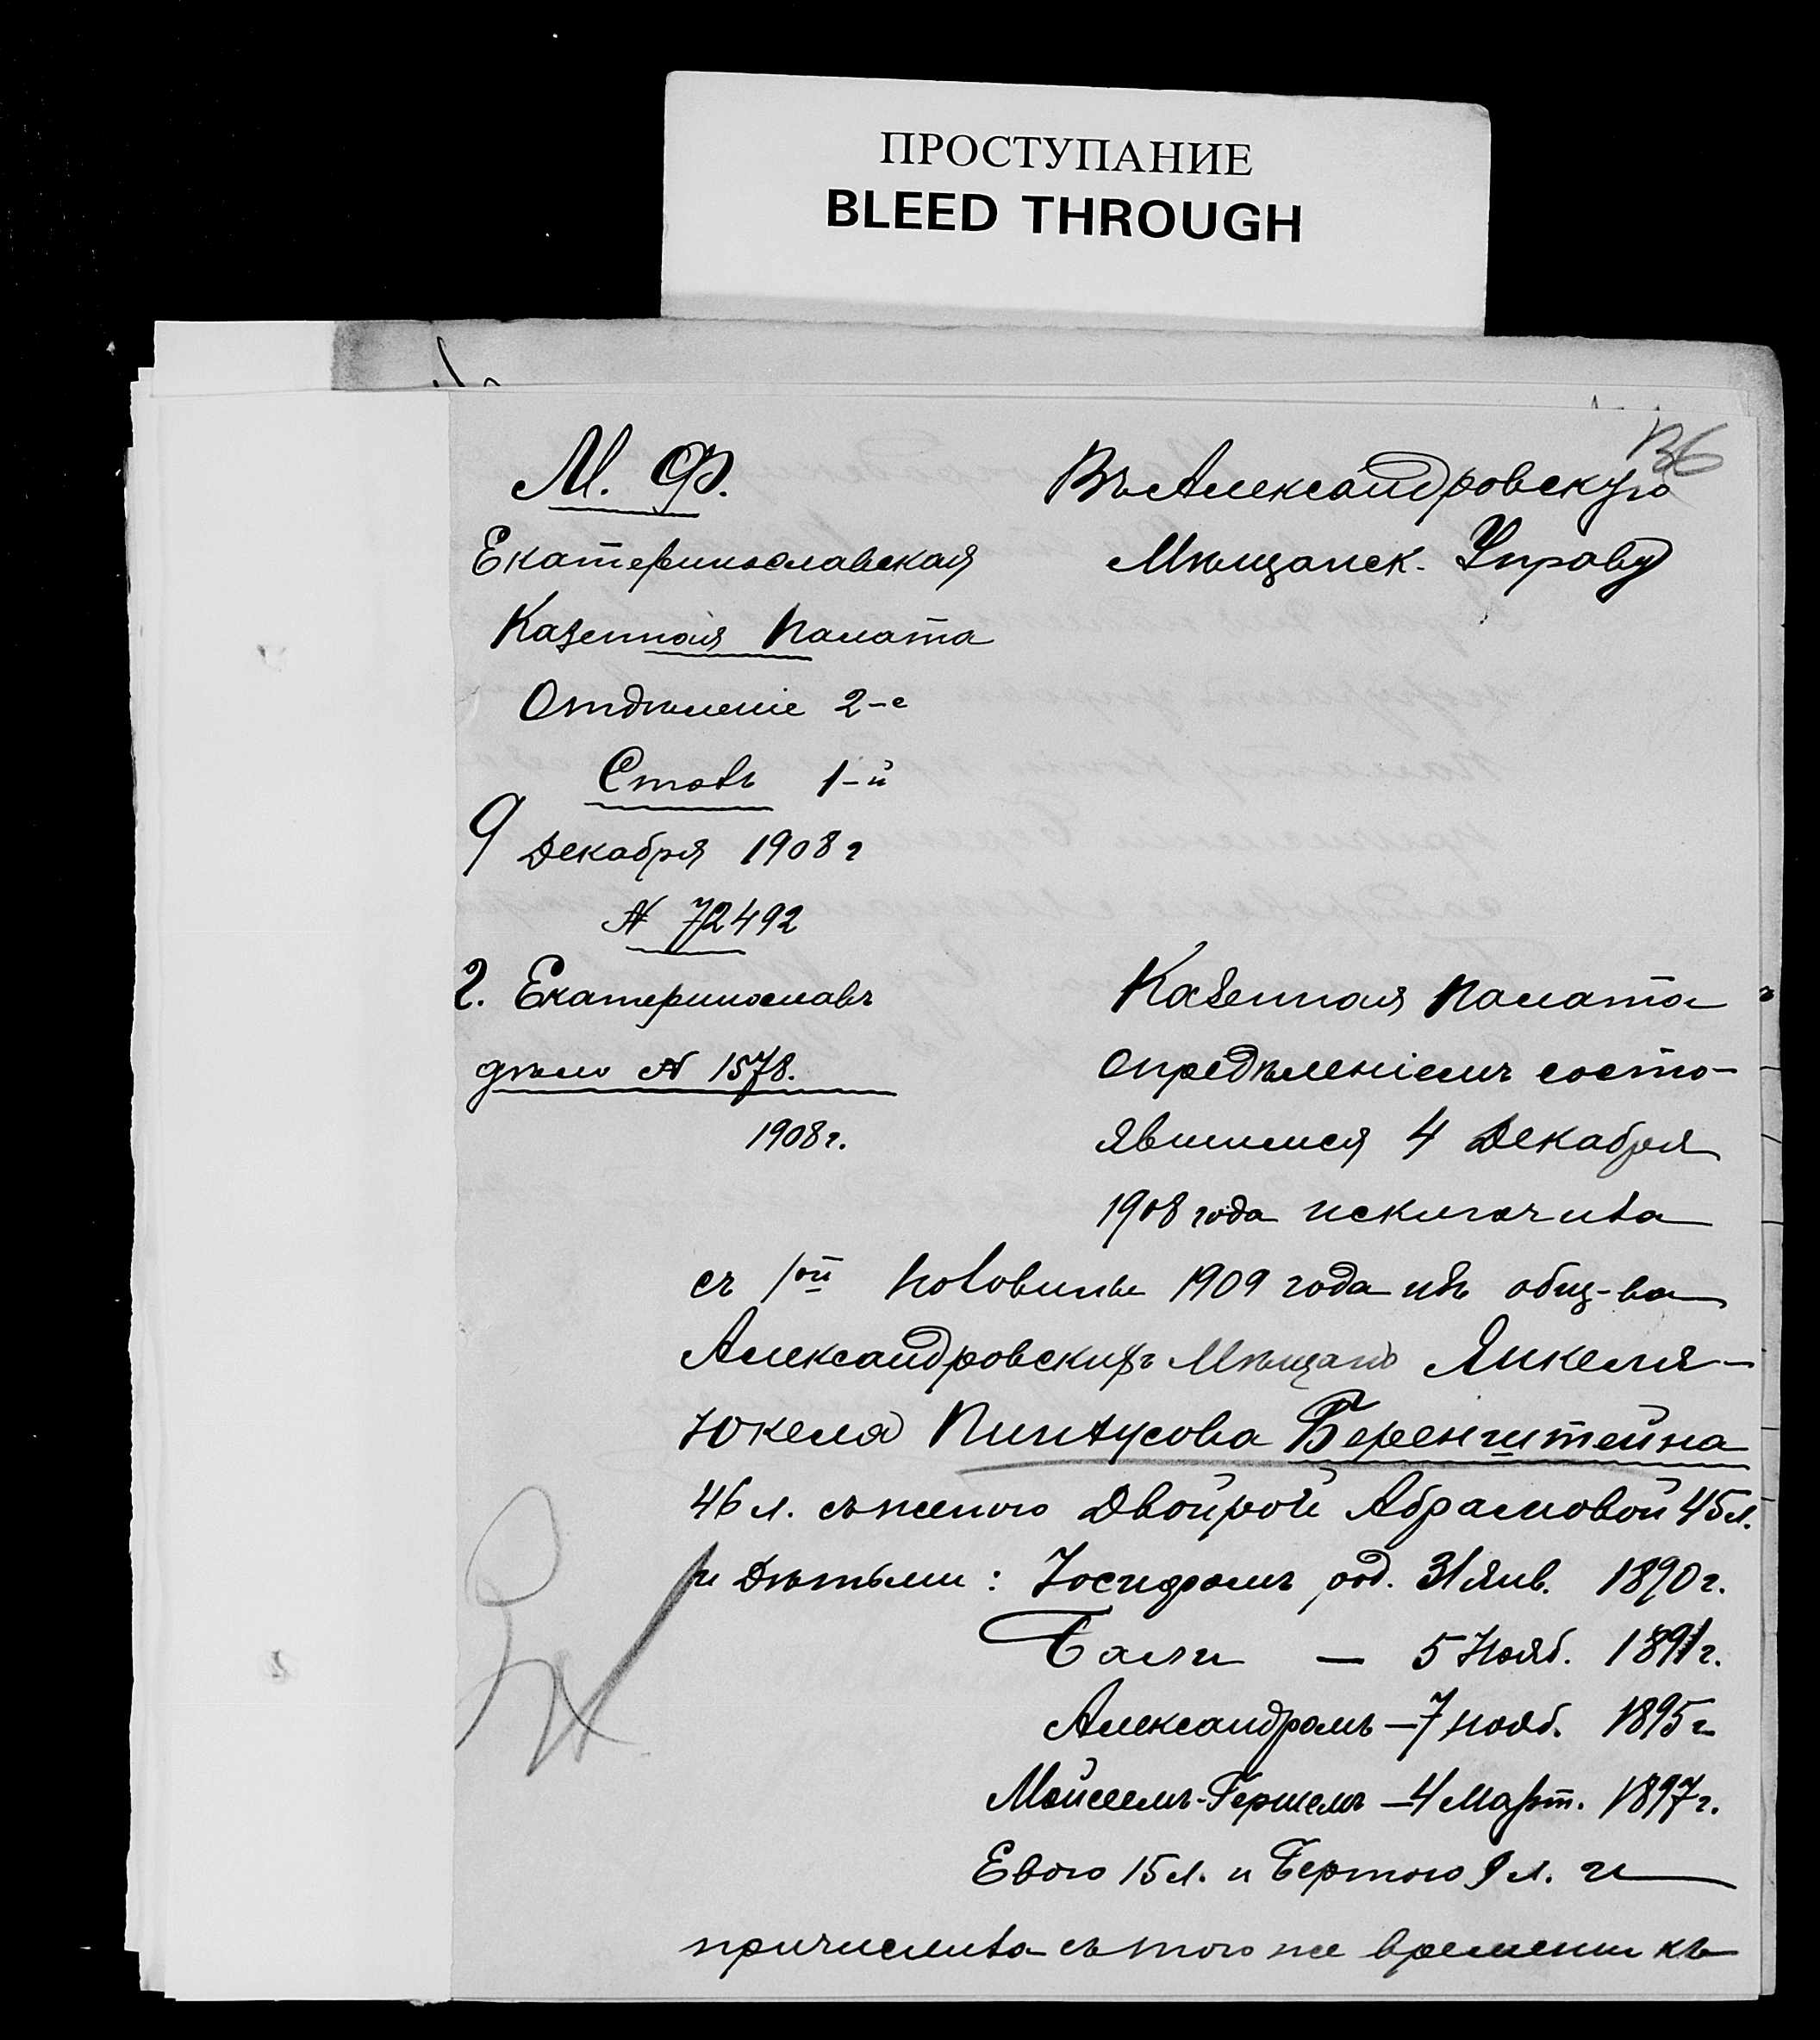 ПРОСТУПАНИЕ
BLEED THROUGH
136
М. Ф.
Екатеринославская
Казенная Палата
Отдѣленіе 2-е
Столъ 1-й
9 Декабря 1908 г
№ 72492
г. Екатеринославъ
дѣло № 1578.
1908 г.
Въ Александровскую
Мѣщанск. Управу
Казенная Палата
опредѣленіемъ состо-
явшимся 4 Декабря
1908 года исключила
съ 1ой половины 1909 года изъ общ-ва
Александровскихъ Мѣщанъ Янкеля-
Юкеля Пинхусова Беренштейна
46 л. съ женою Двойрой Абрамовой 45 л.
и дѣтьми: Іосифомъ род. 31 Янв. 1890 г.
— 5 Нояб. 1891 г.
Александромъ — 7 нояб. 1895 г
Мойсеемъ-Гершемъ — 4 Март. 1897 г.
Евою 15 л. и Бертою 9 л. и
причислила съ того же времени къ